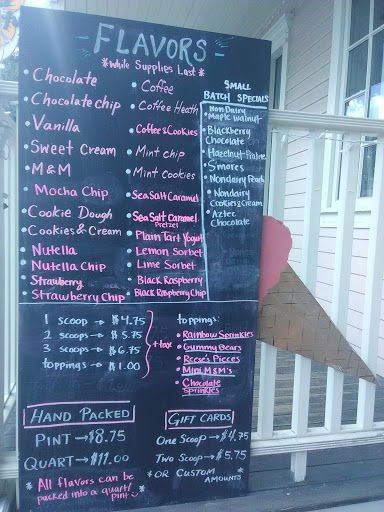 - FLAVORS -
*While Supplies Last*
• Chocolate
• Chocolate chip
• Vanilla
• Sweet Cream
• M&M
• Mocha Chip
• Cookie Dough
• Cookies & Cream
• Nutella
• Nutella Chip
• Strawberry
• Strawberry Chip
• Coffee
• Coffee Heath
• Coffee & Cookies
• Mint chip
• Mint Cookies
• Sea Salt Caramel
• Sea Salt Caramel
Pretzel
• Plain Tart Yogurt
• Lemon Sorbet
• Lime Sorbet
• Black Raspberry
• Black Raspberry Chip
SMALL
BATCH SPECIALS
• Non Dairy
Maple Walnut
• Blackberry
Chocolate
• Hazelnut Praline
• S'mores
• Nondairy Peach
• Nondairy
Cookies & Cream
• Aztec
Chocolate
1 scoop → $4.75
2 scoops → $5.75
3 scoops → $6.75
toppings → $1.00
+ tax
toppings:
• Rainbow Sprinkles
• Gummy Bears
• Reese's Pieces
• Mini M&M's
• Chocolate
Sprinkles
HAND PACKED
PINT → $8.75
QUART → $11.00
* All flavors can be *
packed into a quart/
pint
GIFT CARDS
One Scoop → $4.75
Two Scoop → $5.75
* OR CUSTOM *
AMOUNTS